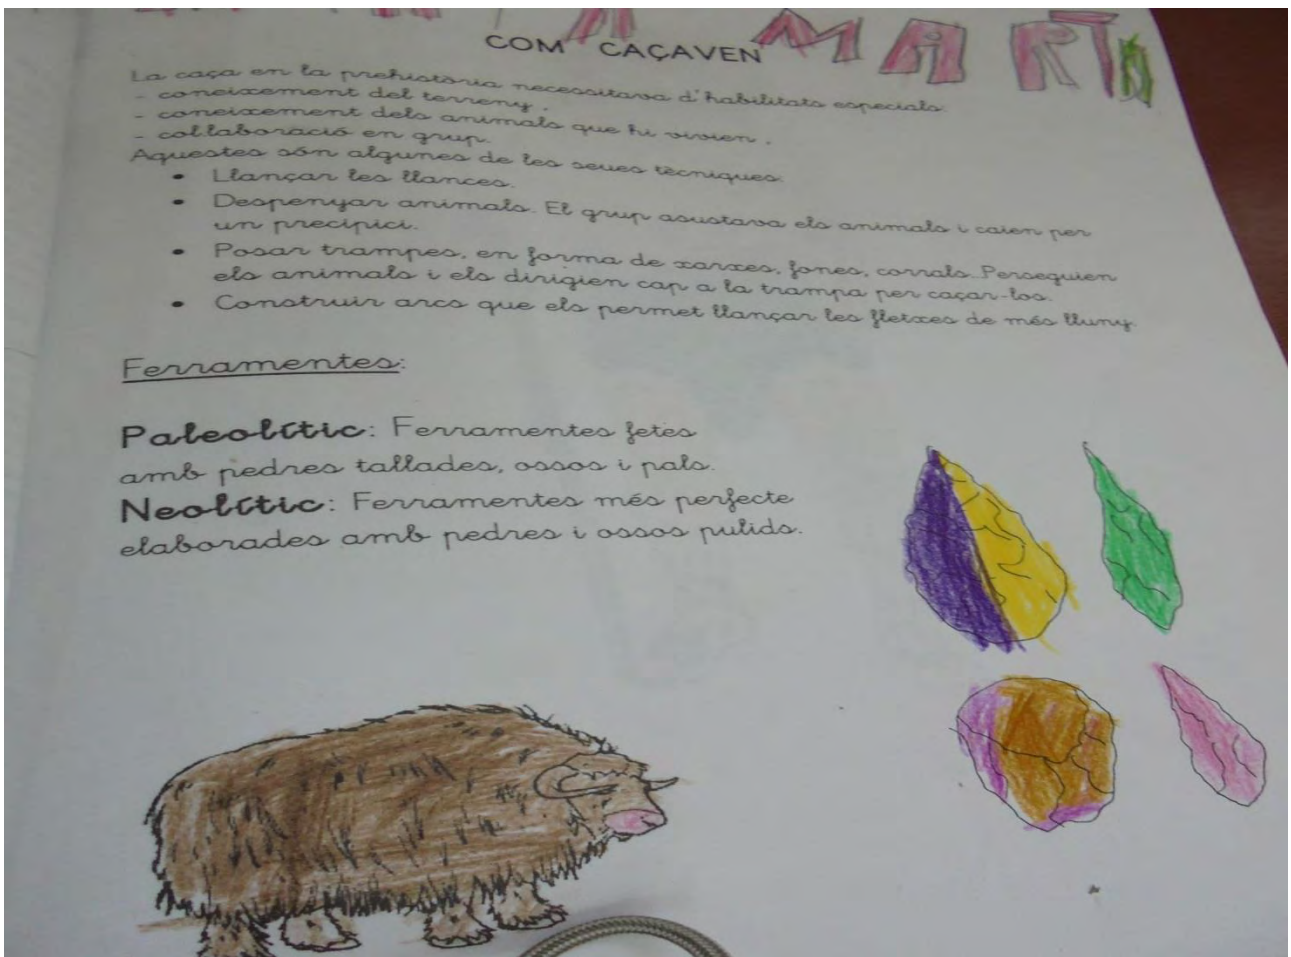 MARTA
COM CAÇAVEN
La caça en la prehistòria necessitava d'habilitats especials:
- coneixement del terreny.
- coneixement dels animals que hi vivien.
- collaboració en grup.
Aquestes són algunes de les seues tècniques:
• Llançar les llances.
• Despenyar animals. El grup asustava els animals i caien per
un precipici.
• Posar trampes, en forma de xarxes, fones, corrals. Perseguien
els animals i els dirigien cap a la trampa per caçar-los.
• Construir arcs que els permet llançar les fletxes de més lluny.
Ferramentes:
Paleolític: Ferramentes fetes
amb pedres tallades, ossos i pals.
Neolític: Ferramentes més perfecte
elaborades amb pedres i ossos pulids.